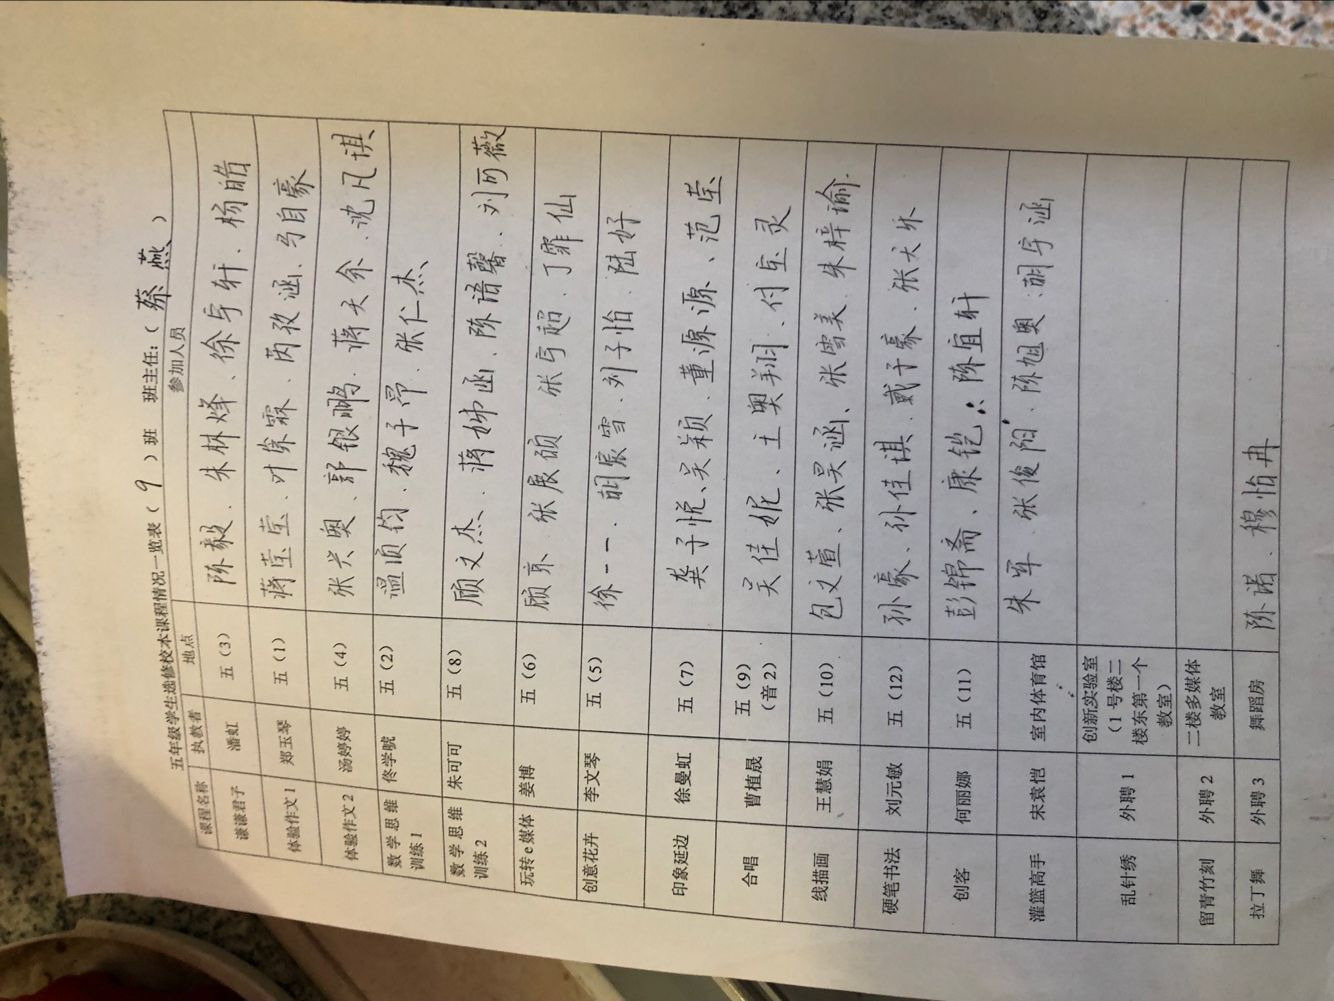 五年级学生选修校本课程情况一览表（ 9 ）班 班主任：（ 蔡燕 ）
课程名称 执教者 地点 参加人员
谦谦君子 潘虹 五（3） 陈毅、朱林烽、徐宇轩、杨皓
体验作文1 郑玉琴 五（1） 蒋莹莹、叶徐霖、芮孜涵、马自豪
体验作文2 汤婷婷 五（4） 张兴奥、郭银鹏、蒋天俞、沈凡淇
数学思维训练1 佟学虓 五（2） 温顺钧、魏子昂、张仁杰、
数学思维训练2 朱可可 五（8） 顾文杰、蒋姊函、陈语馨、刘可薇
玩转e媒体 姜博 五（6） 顾京、张展硕、张宇超、丁霏仙
创意花卉 李文琴 五（5） 徐一一、胡宸雪、刘子怡、陆好
印象延边 徐曼虹 五（7） 龚子悦、吴颖、董源源、范莹
合唱 曹植晟 五（9）（音2） 吴佳妮、王奥翔、付宝灵
线描画 王慧娟 五（10） 包文萱、张昊涵、张雪美、朱梓谕
硬笔书法 刘元敏 五（12） 孙豪、孙佳琪、戴子豪、张天乐
创客 何丽娜 五（11） 彭锦斋、康铠、陈宜轩
灌篮高手 宋袁恺 室内体育馆 朱军、张俊阳、陈旭奥、胡宇涵
乱针绣 外聘1 创新实验室（1号楼二楼东第一个教室）
留青竹刻 外聘2 二楼多媒体教室
拉丁舞 外聘3 舞蹈房 陈诺、穆怡冉